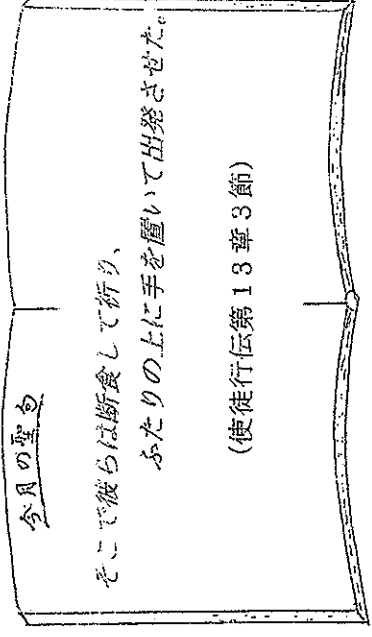 今月の聖句
そこで彼らは断食して祈り、
ふたりの上に手を置いて出発させた。
(使徒行伝第13章3節)